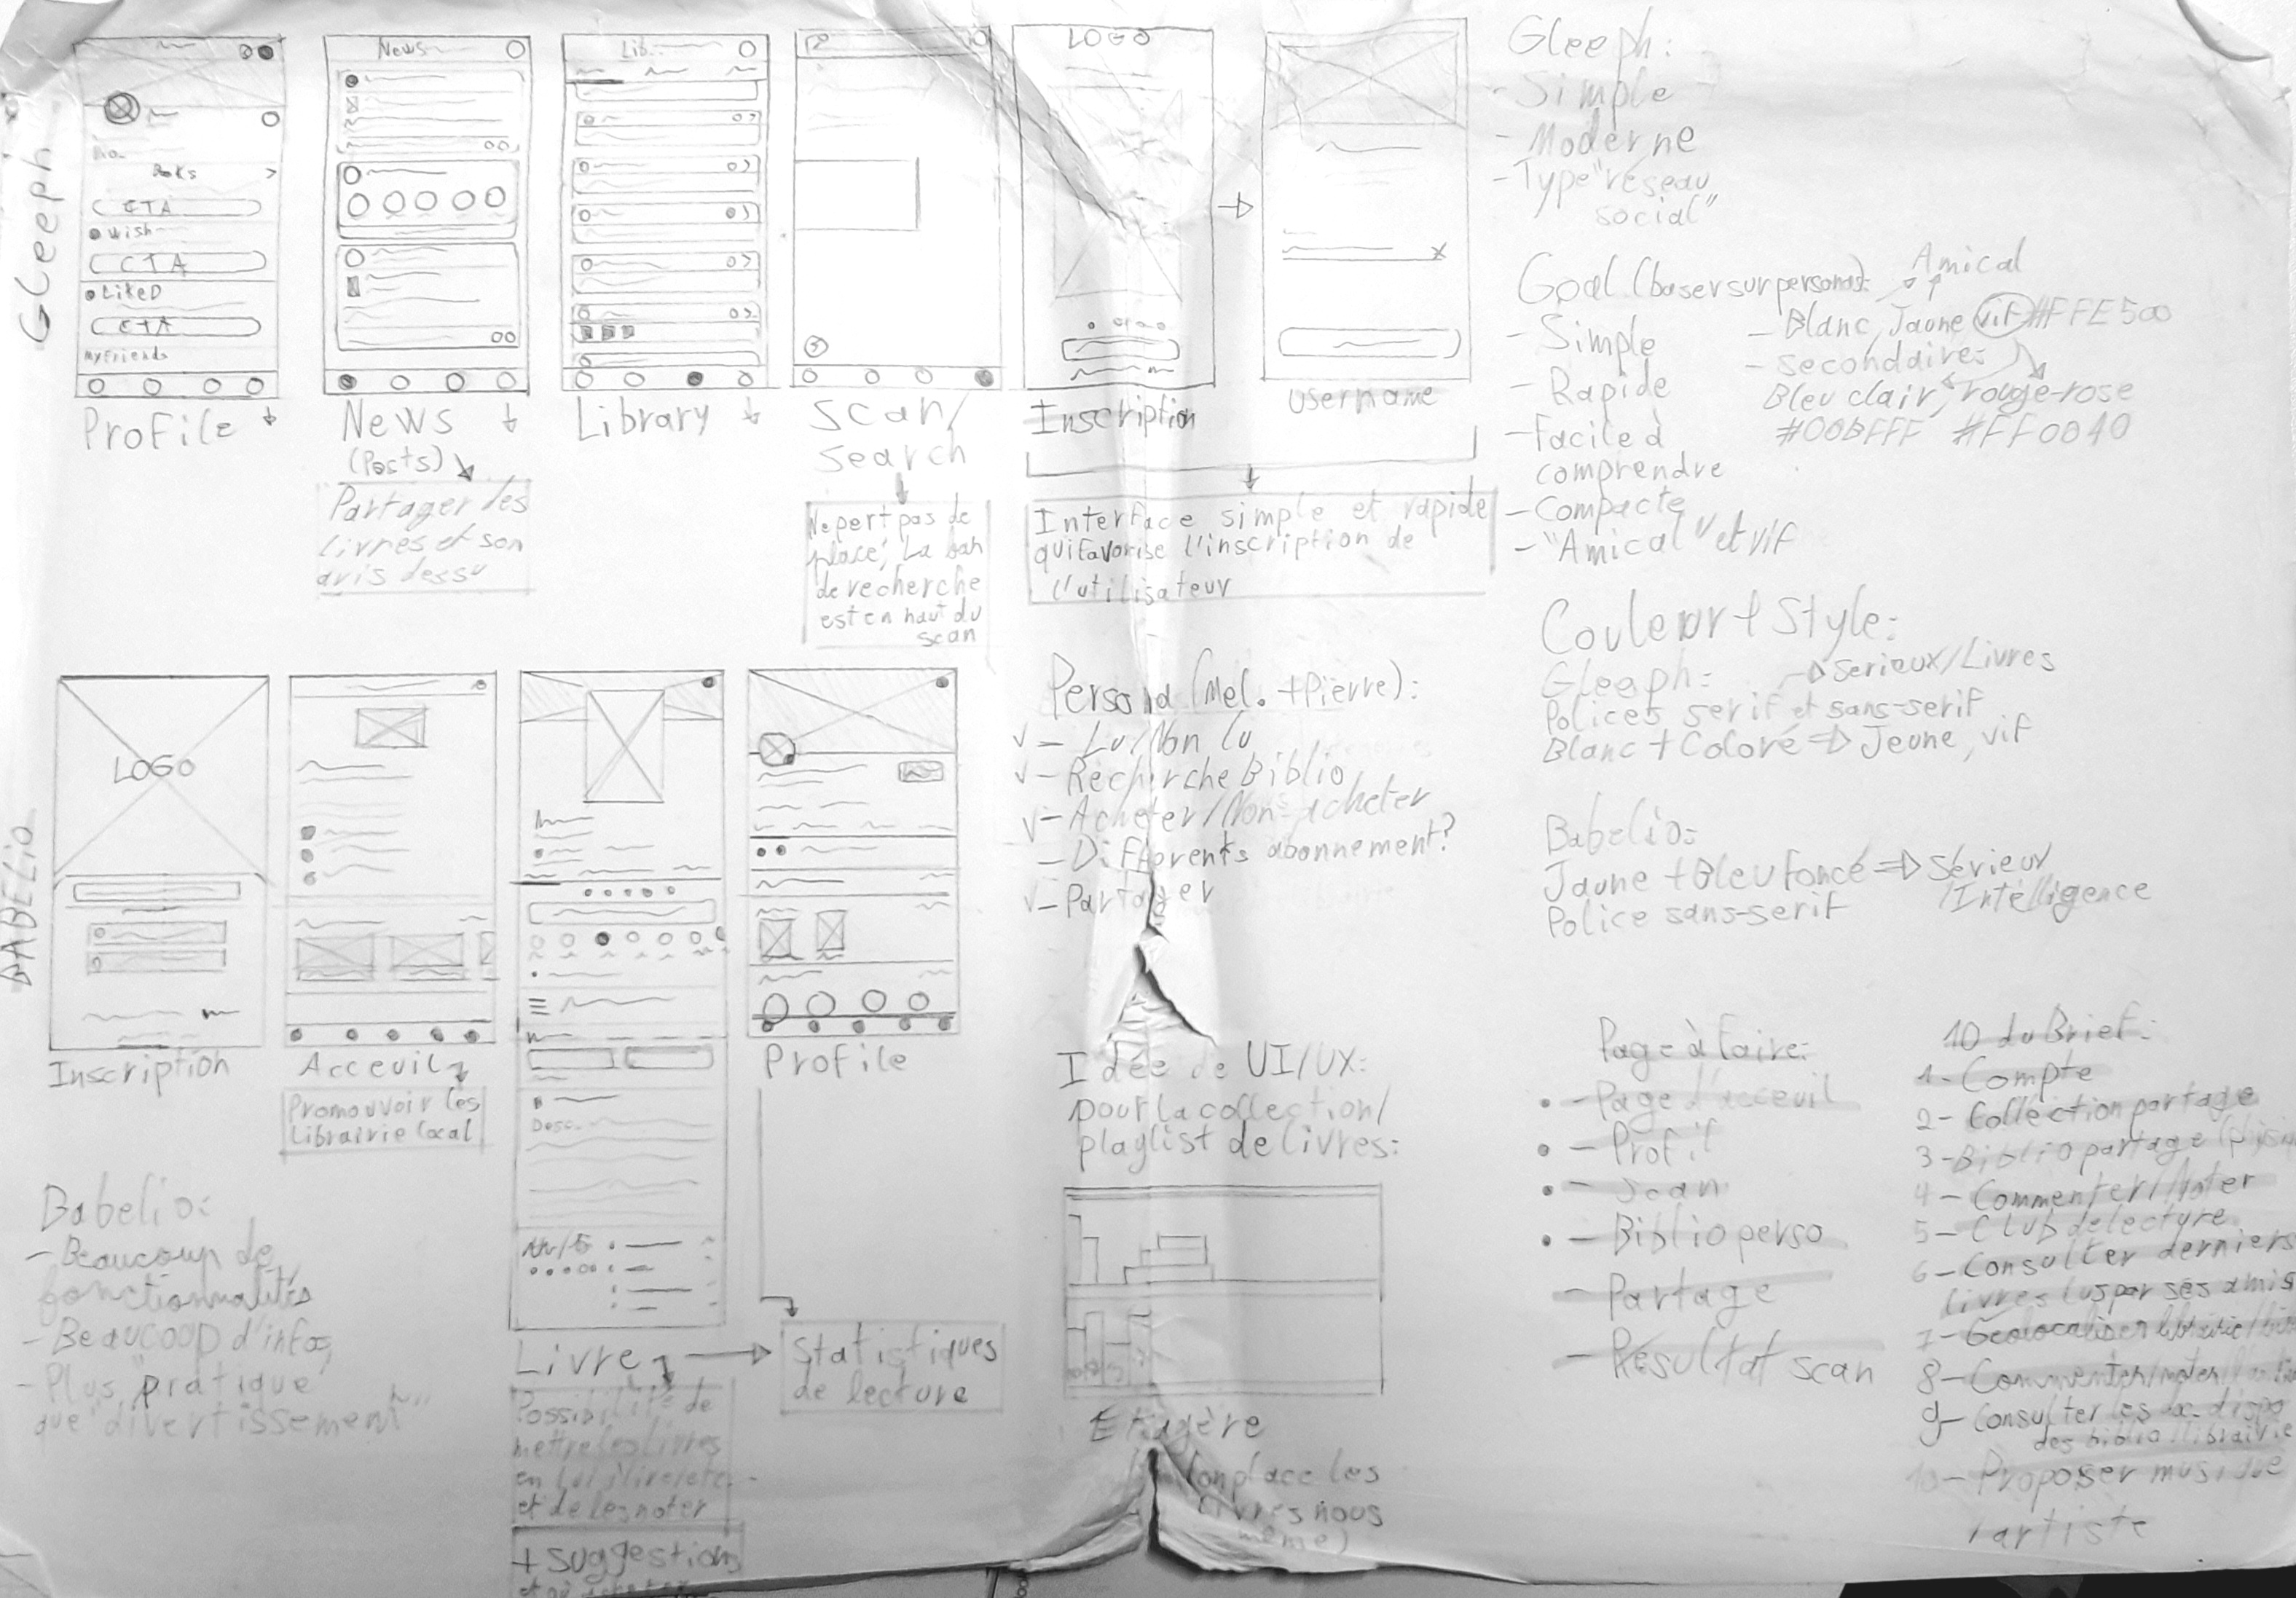 Gleeph
News
Lib.
LOGO
Bio.
Books >
CTA
Wish
CTA
LikeD
CTA
MyFriends
Profile
News
(Posts)
Partager les
livres et son
avis dessu
Library
Scan/
Search
Ne pert pas de
place, La bar
de recherche
est en haut du
scan
Inscription
Username
Interface simple et rapide
qui favorise l'inscription de
l'utilisateur
Gleeph:
- Simple
- Moderne
- Type "réseau
social"
Goal (baser sur personas):
- Simple
- Rapide
- Facile à
comprendre
- Compacte
- "Amical" et vif
Amical
- Blanc, Jaune vif #FFE500
- Secondaire:
Bleu clair, rouge-rose
#00BFFF #FF0040
Couleur + Style:
Gleeph: Serieux/Livres
Polices serif et sans-serif
Blanc + Coloré => Jeune, vif
Babelio:
Jaune + Bleu foncé => Sérieux
/Intelligence
Police sans-serif
BABELIO
LOGO
Inscription
Acceuil
Promouvoir les
Librairie local
Desc.
/5
Livre
Possibilité de
mettre les livres
en
et de les noter
+ suggestions
Profile
Statistiques
de lecture
Babelio:
- Beaucoup de
fonctionnalités
- Beaucoup d'infos
- Plus "pratique"
que "divertissement"
Persona (Mel. + Pierre):
✓ - Lu/Non lu
✓ - Recherche Biblio
✓ - Acheter/Non-acheter
- Différents abonnement?
✓ - Partager
Idée de UI/UX:
pour la collection/
playlist de livres:
Etagère
on place les
livres nous
même)
Page à faire:
- Page d'acceuil
- Profil
- Scan
- Biblio perso
- Partage
- Résultat scan
10 du Brief:
1- Compte
2- Collection partage
3- Biblio partage
4- Commenter/Noter
5- Club de lecture
6- Consulter derniers
livres lus par ses amis
7- Géolocaliser librairie
8- Commenter/noter
9- Consulter les dispo
des biblio/librairie
10- Proposer musique
artiste